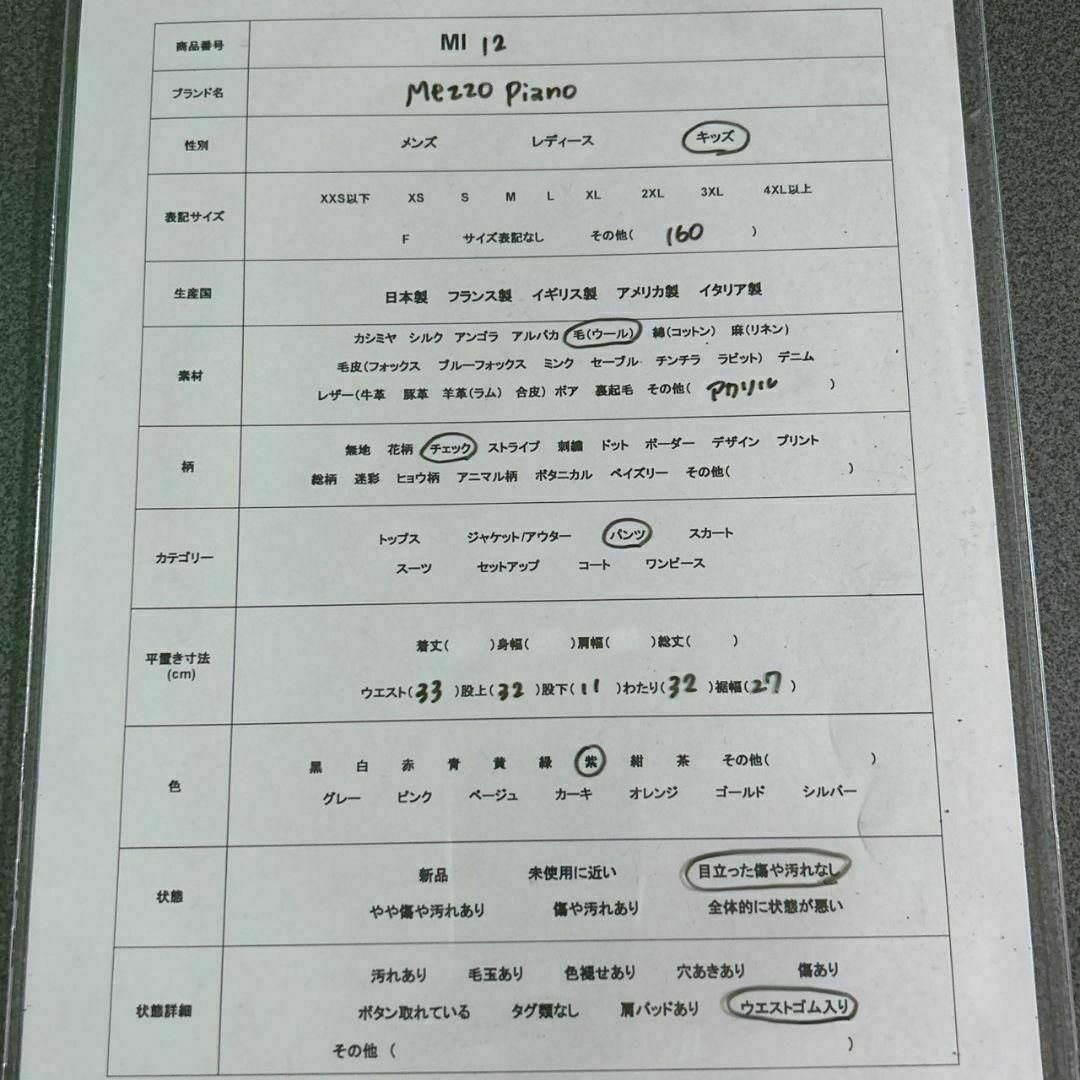 商品番号 MI 12
ブランド名 Mezzo Piano
性別 メンズ レディース キッズ
XXS以下 XS S M L XL 2XL 3XL 4XL以上
表記サイズ
F サイズ表記なし その他( 160 )
生産国 日本製 フランス製 イギリス製 アメリカ製 イタリア製
カシミヤ シルク アンゴラ アルパカ 毛(ウール) 綿(コットン) 麻(リネン)
毛皮(フォックス ブルーフォックス ミンク セーブル チンチラ ラビット) デニム
素材
レザー(牛革 豚革 羊革(ラム) 合皮) ボア 裏起毛 その他( アクリル )
無地 花柄 チェック ストライプ 刺繍 ドット ボーダー デザイン プリント
柄
総柄 迷彩 ヒョウ柄 アニマル柄 ボタニカル ペイズリー その他( )
トップス ジャケット/アウター パンツ スカート
カテゴリー
スーツ セットアップ コート ワンピース
着丈( )身幅( )肩幅( )総丈( )
平置き寸法
(cm)
ウエスト(33)股上(32)股下(11)わたり(32)裾幅(27)
黒 白 赤 青 黄 緑 紫 紺 茶 その他( )
色
グレー ピンク ベージュ カーキ オレンジ ゴールド シルバー
新品 未使用に近い 目立った傷や汚れなし
状態
やや傷や汚れあり 傷や汚れあり 全体的に状態が悪い
汚れあり 毛玉あり 色褪せあり 穴あきあり 傷あり
状態詳細
ボタン取れている タグ類なし 肩パッドあり ウエストゴム入り
その他 ( )